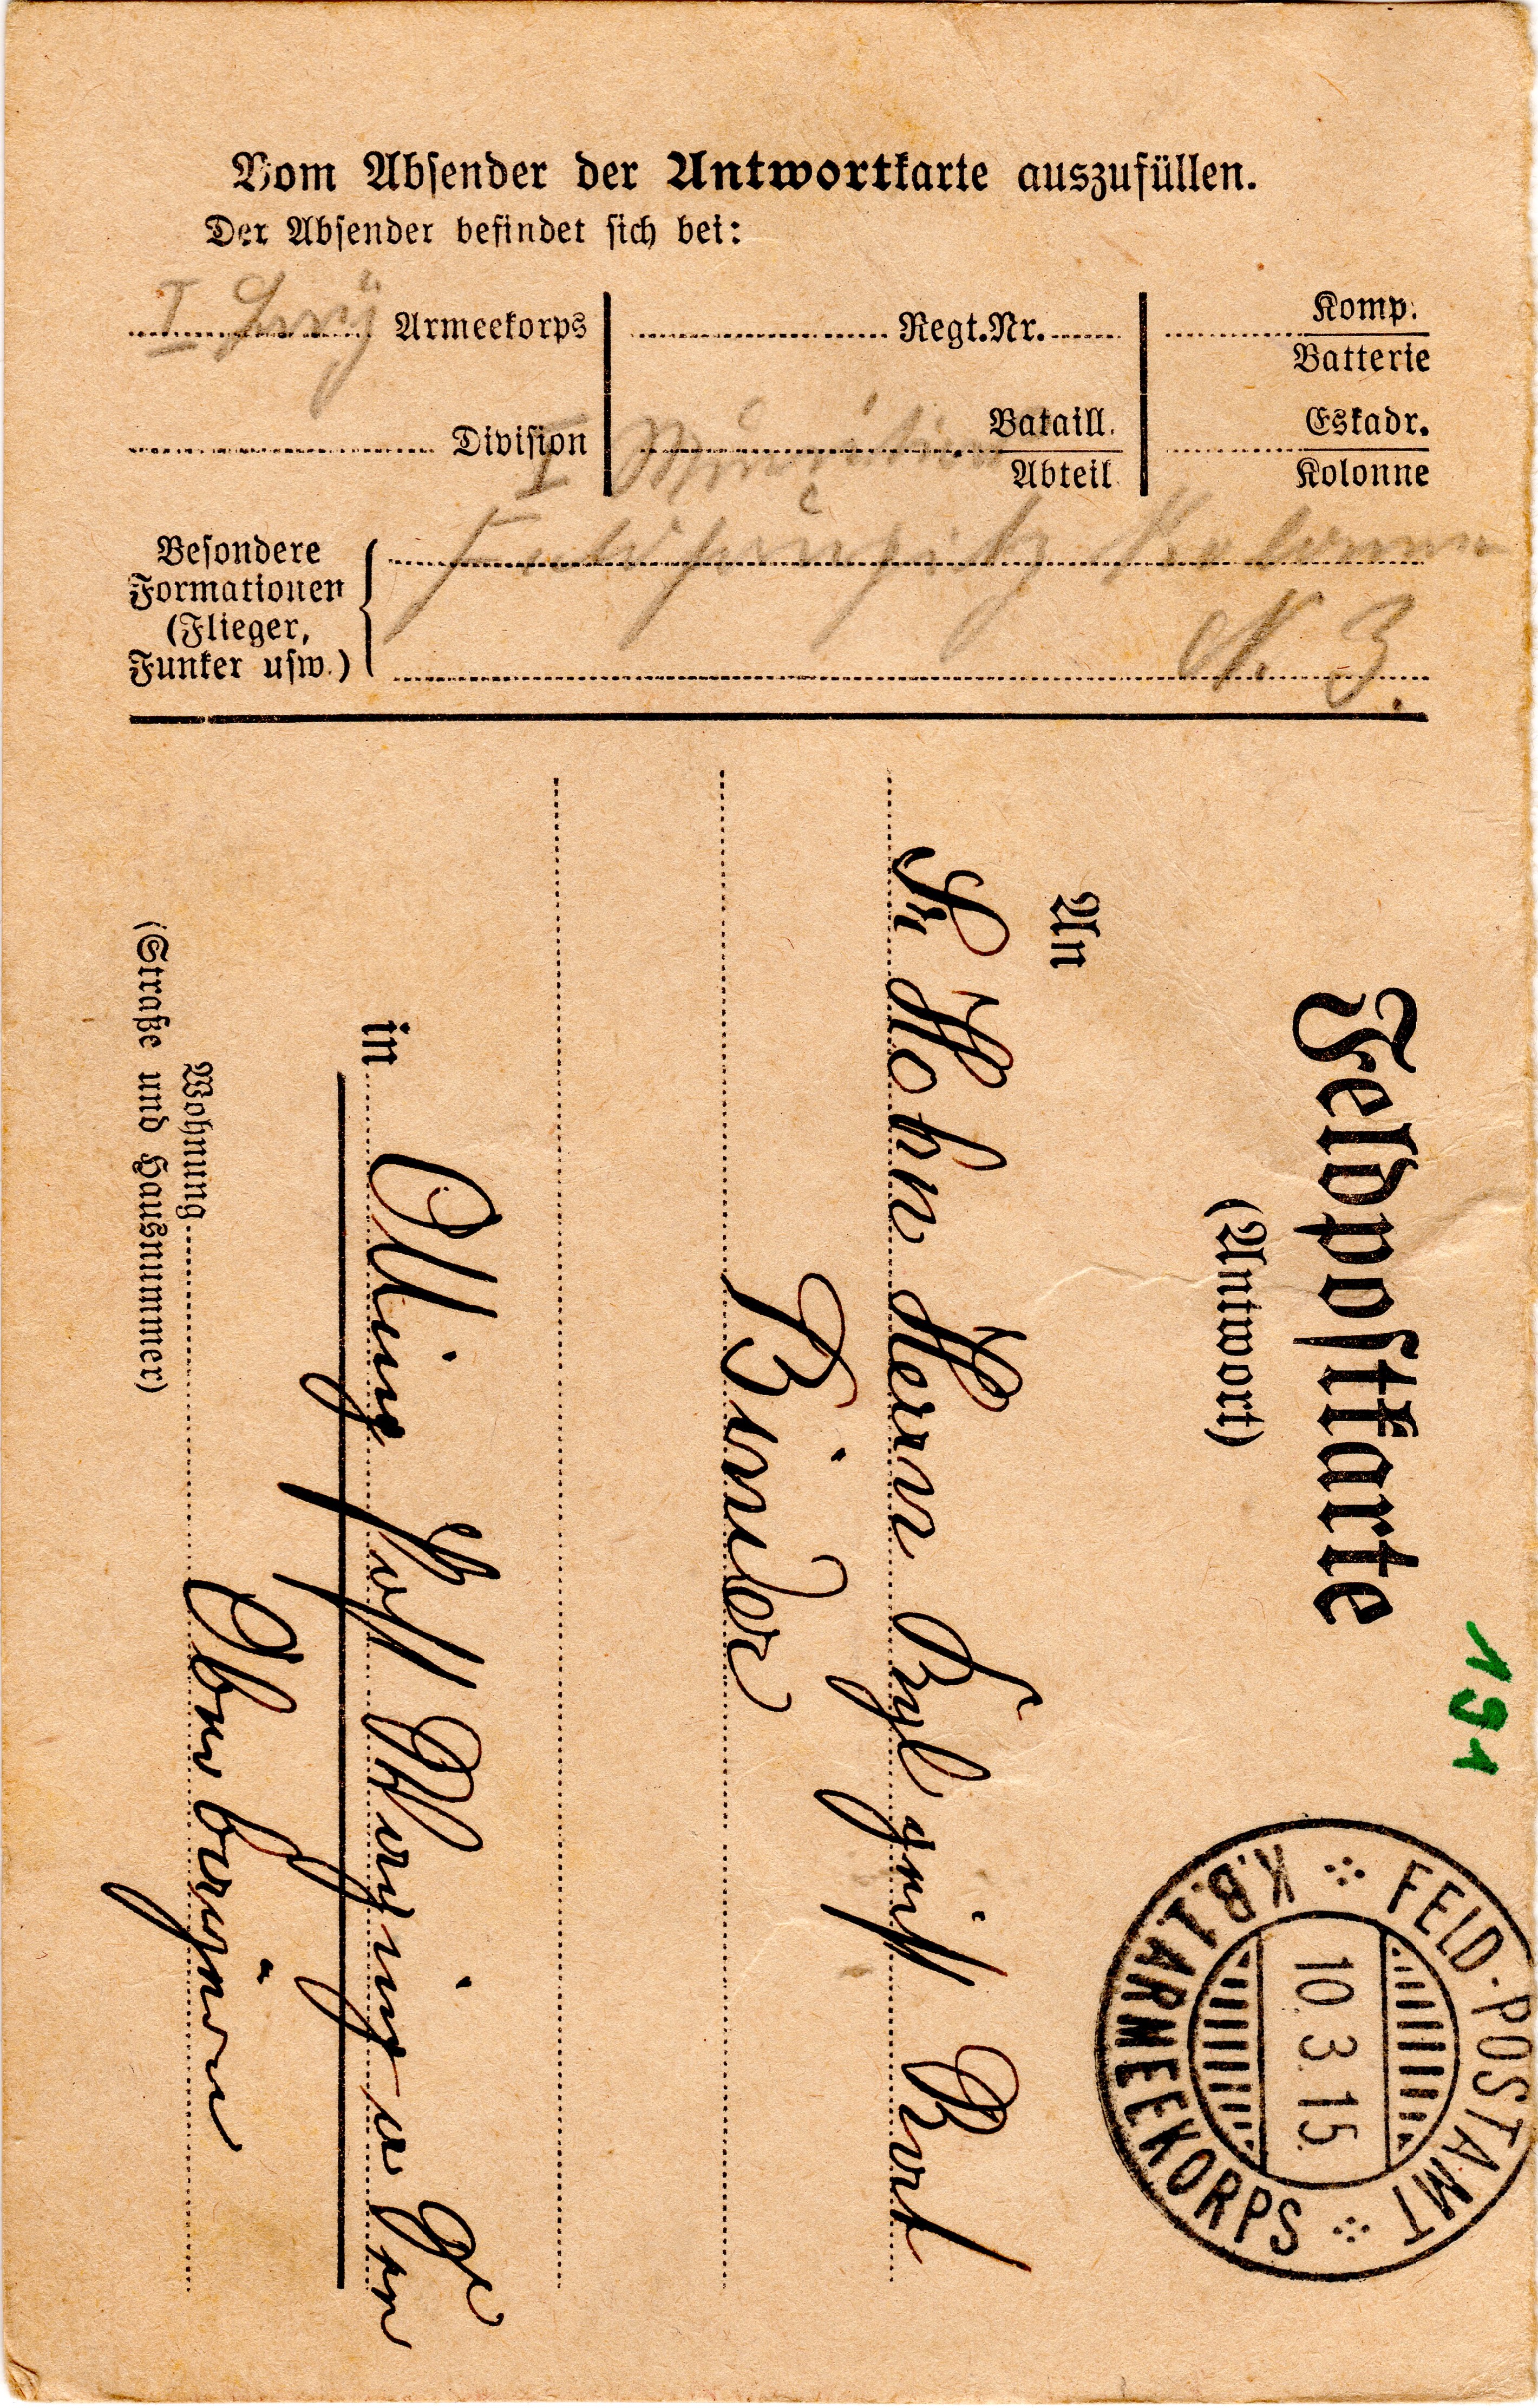 Vom Absender der Antwortkarte auszufüllen.
Der Absender befindet sich bei:
I Bay Armeekorps
Regt.Nr.
Komp.
Batterie
Division
I Munition
Bataill.
Abteil.
Eskadr.
Kolonne
Besondere
Formationen
(Flieger,
Funker usw.)
Feldhaubitz Kolonne
N. 3.
Feldpostkarte
(Antwort)
191
FELD-POSTAMT
10.3.15.
K.B.1.ARMEEKORPS
An
Sr Hohn Herrn
Binder
in Olling Post Glonn
Wohnung Oberbayern
(Straße und Hausnummer)